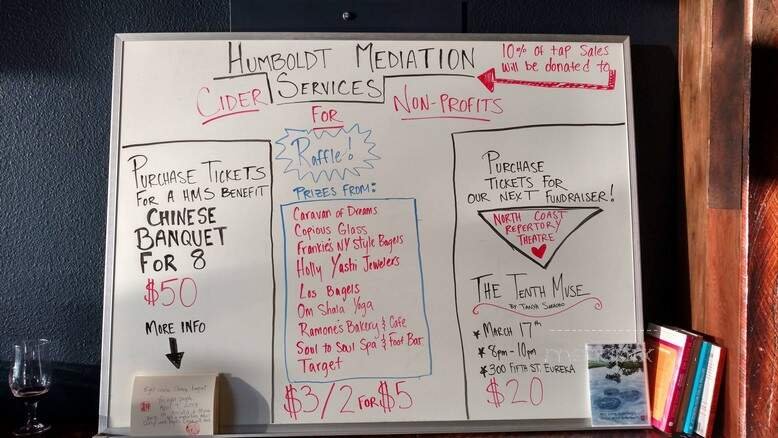 HUMBOLDT MEDIATION
SERVICES
10% of tap Sales
will be donated to
CIDER FOR NON-PROFITS
PURCHASE TICKETS
FOR A HMS BENEFIT
CHINESE
BANQUET
FOR 8
$50
MORE INFO
Raffle!
PRIZES FROM:
Caravan of Dreams
Copious Glass
Frankie's NY Style Bagels
Holly Yashi Jewelers
Los Bagels
Om Shala Yoga
Ramone's Bakery & Cafe
Soul to Soul Spa & Foot Bar
Target
$3/2 FOR $5
PURCHASE
TICKETS FOR
OUR NEXT FUNDRAISER!
NORTH COAST
REPERTORY
THEATRE
THE TENTH MUSE
BY TANYA
* MARCH 17TH
* 8pm-10pm
* 300 FIFTH ST. EUREKA
$20